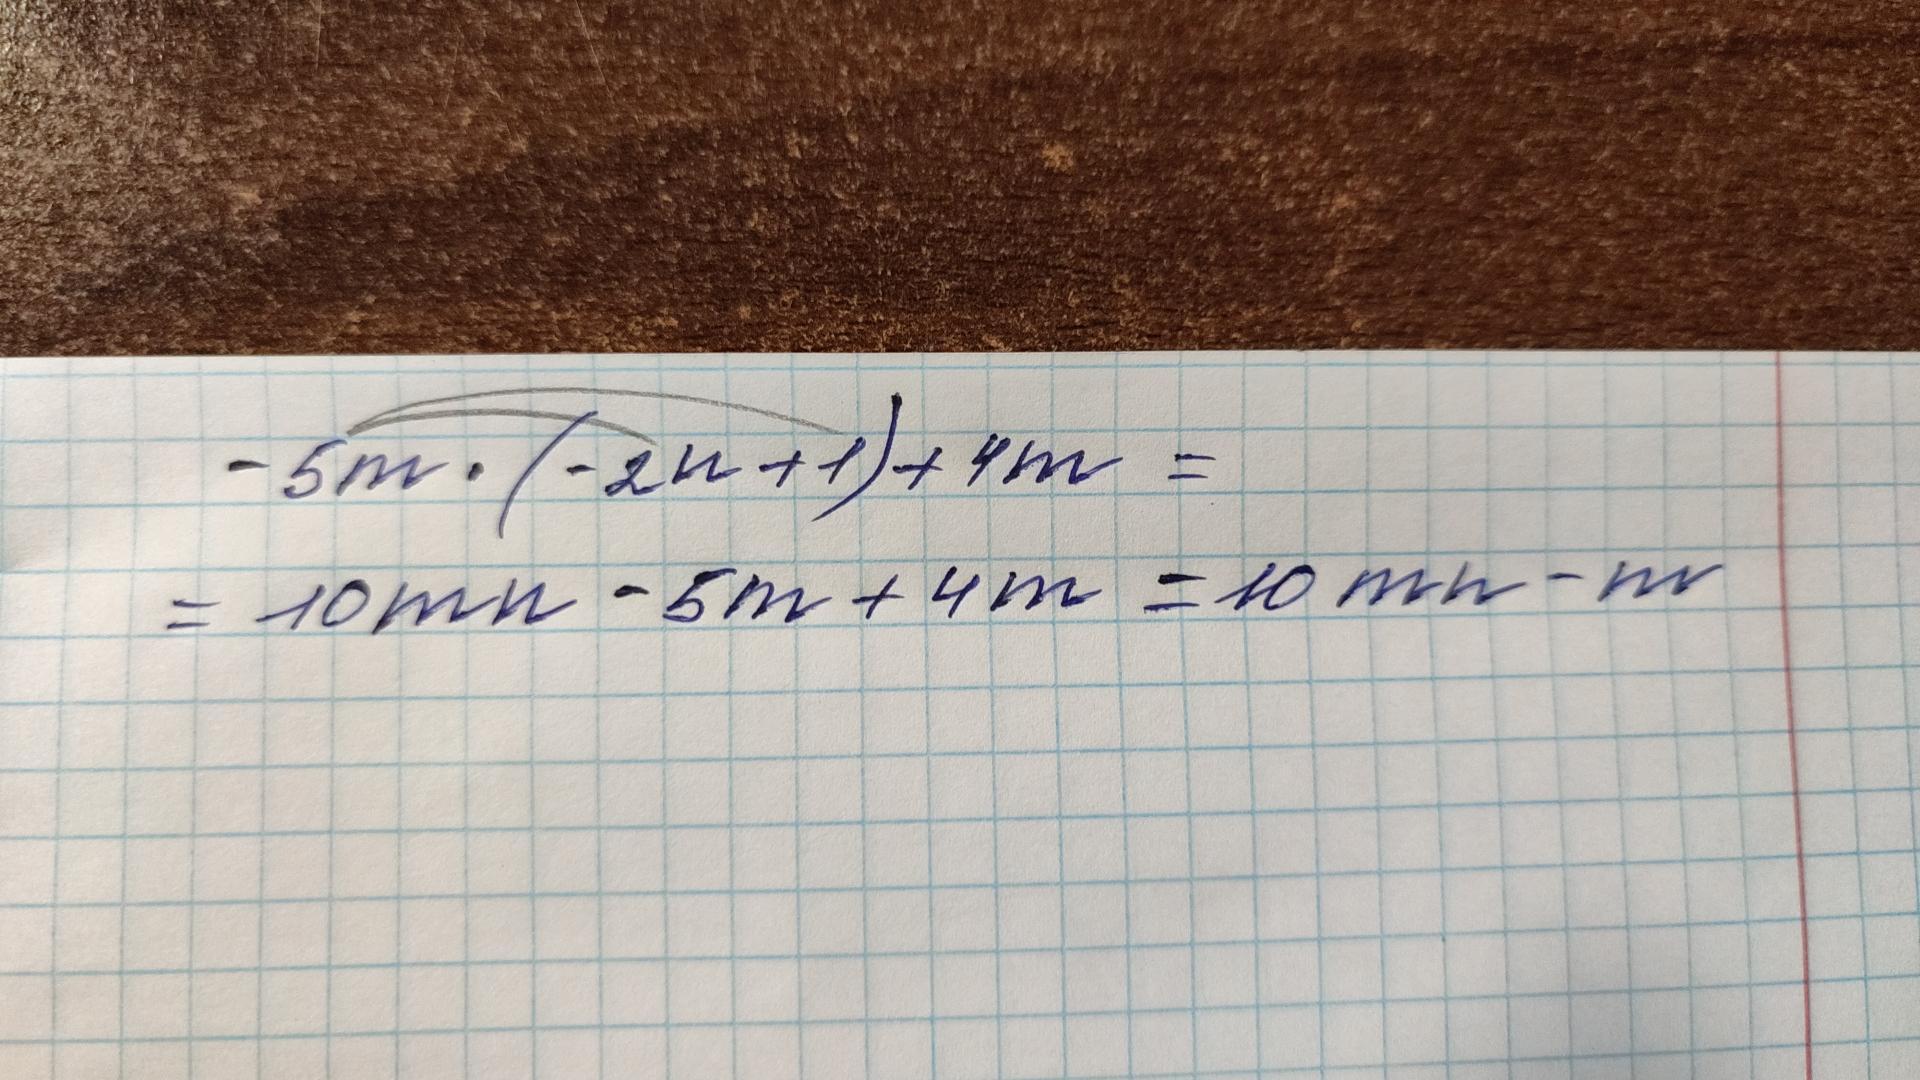 -5m·(-2n+1)+4m =
= 10mn - 5m + 4m = 10mn - m